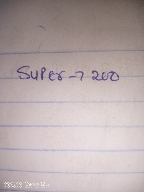 SUPER-7 200